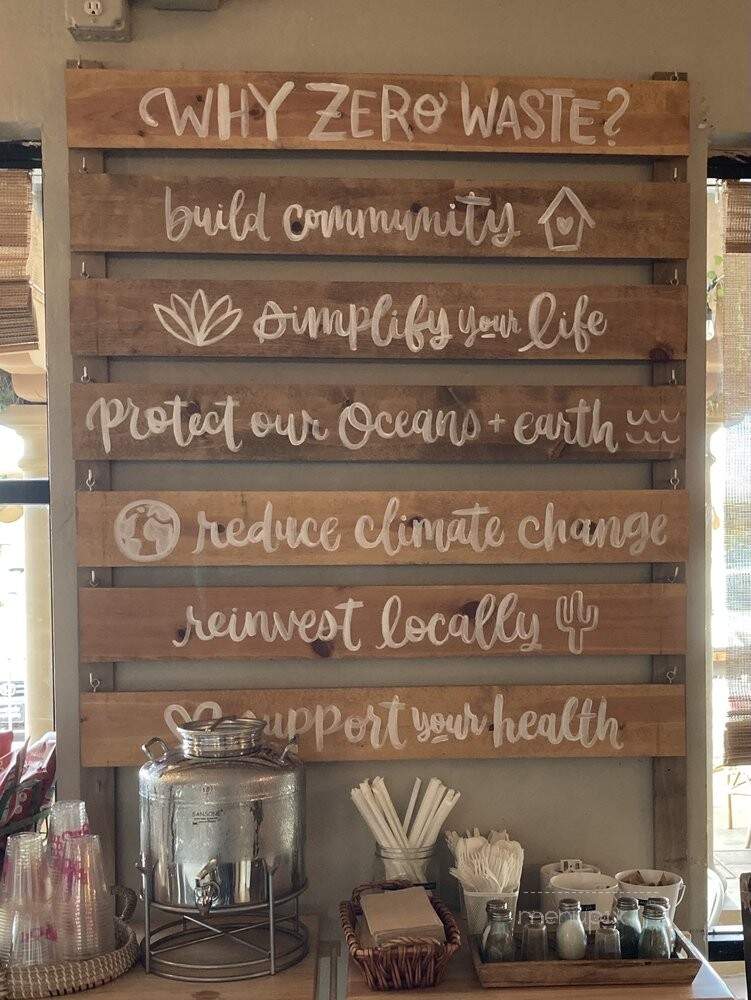 WHY ZERO WASTE?
build community
simplify your life
protect our Oceans + earth
reduce climate change
reinvest locally
support your health
SANSONE
menupix